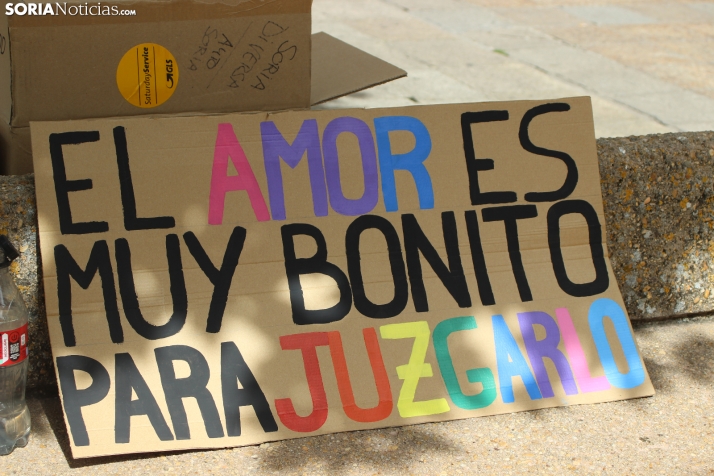 SORIANoticias.com
SaturdayService
GLS
SORIA
DIVERSA
AMD
SORIA
EL AMOR ES
MUY BONITO
PARA JUZGARLO